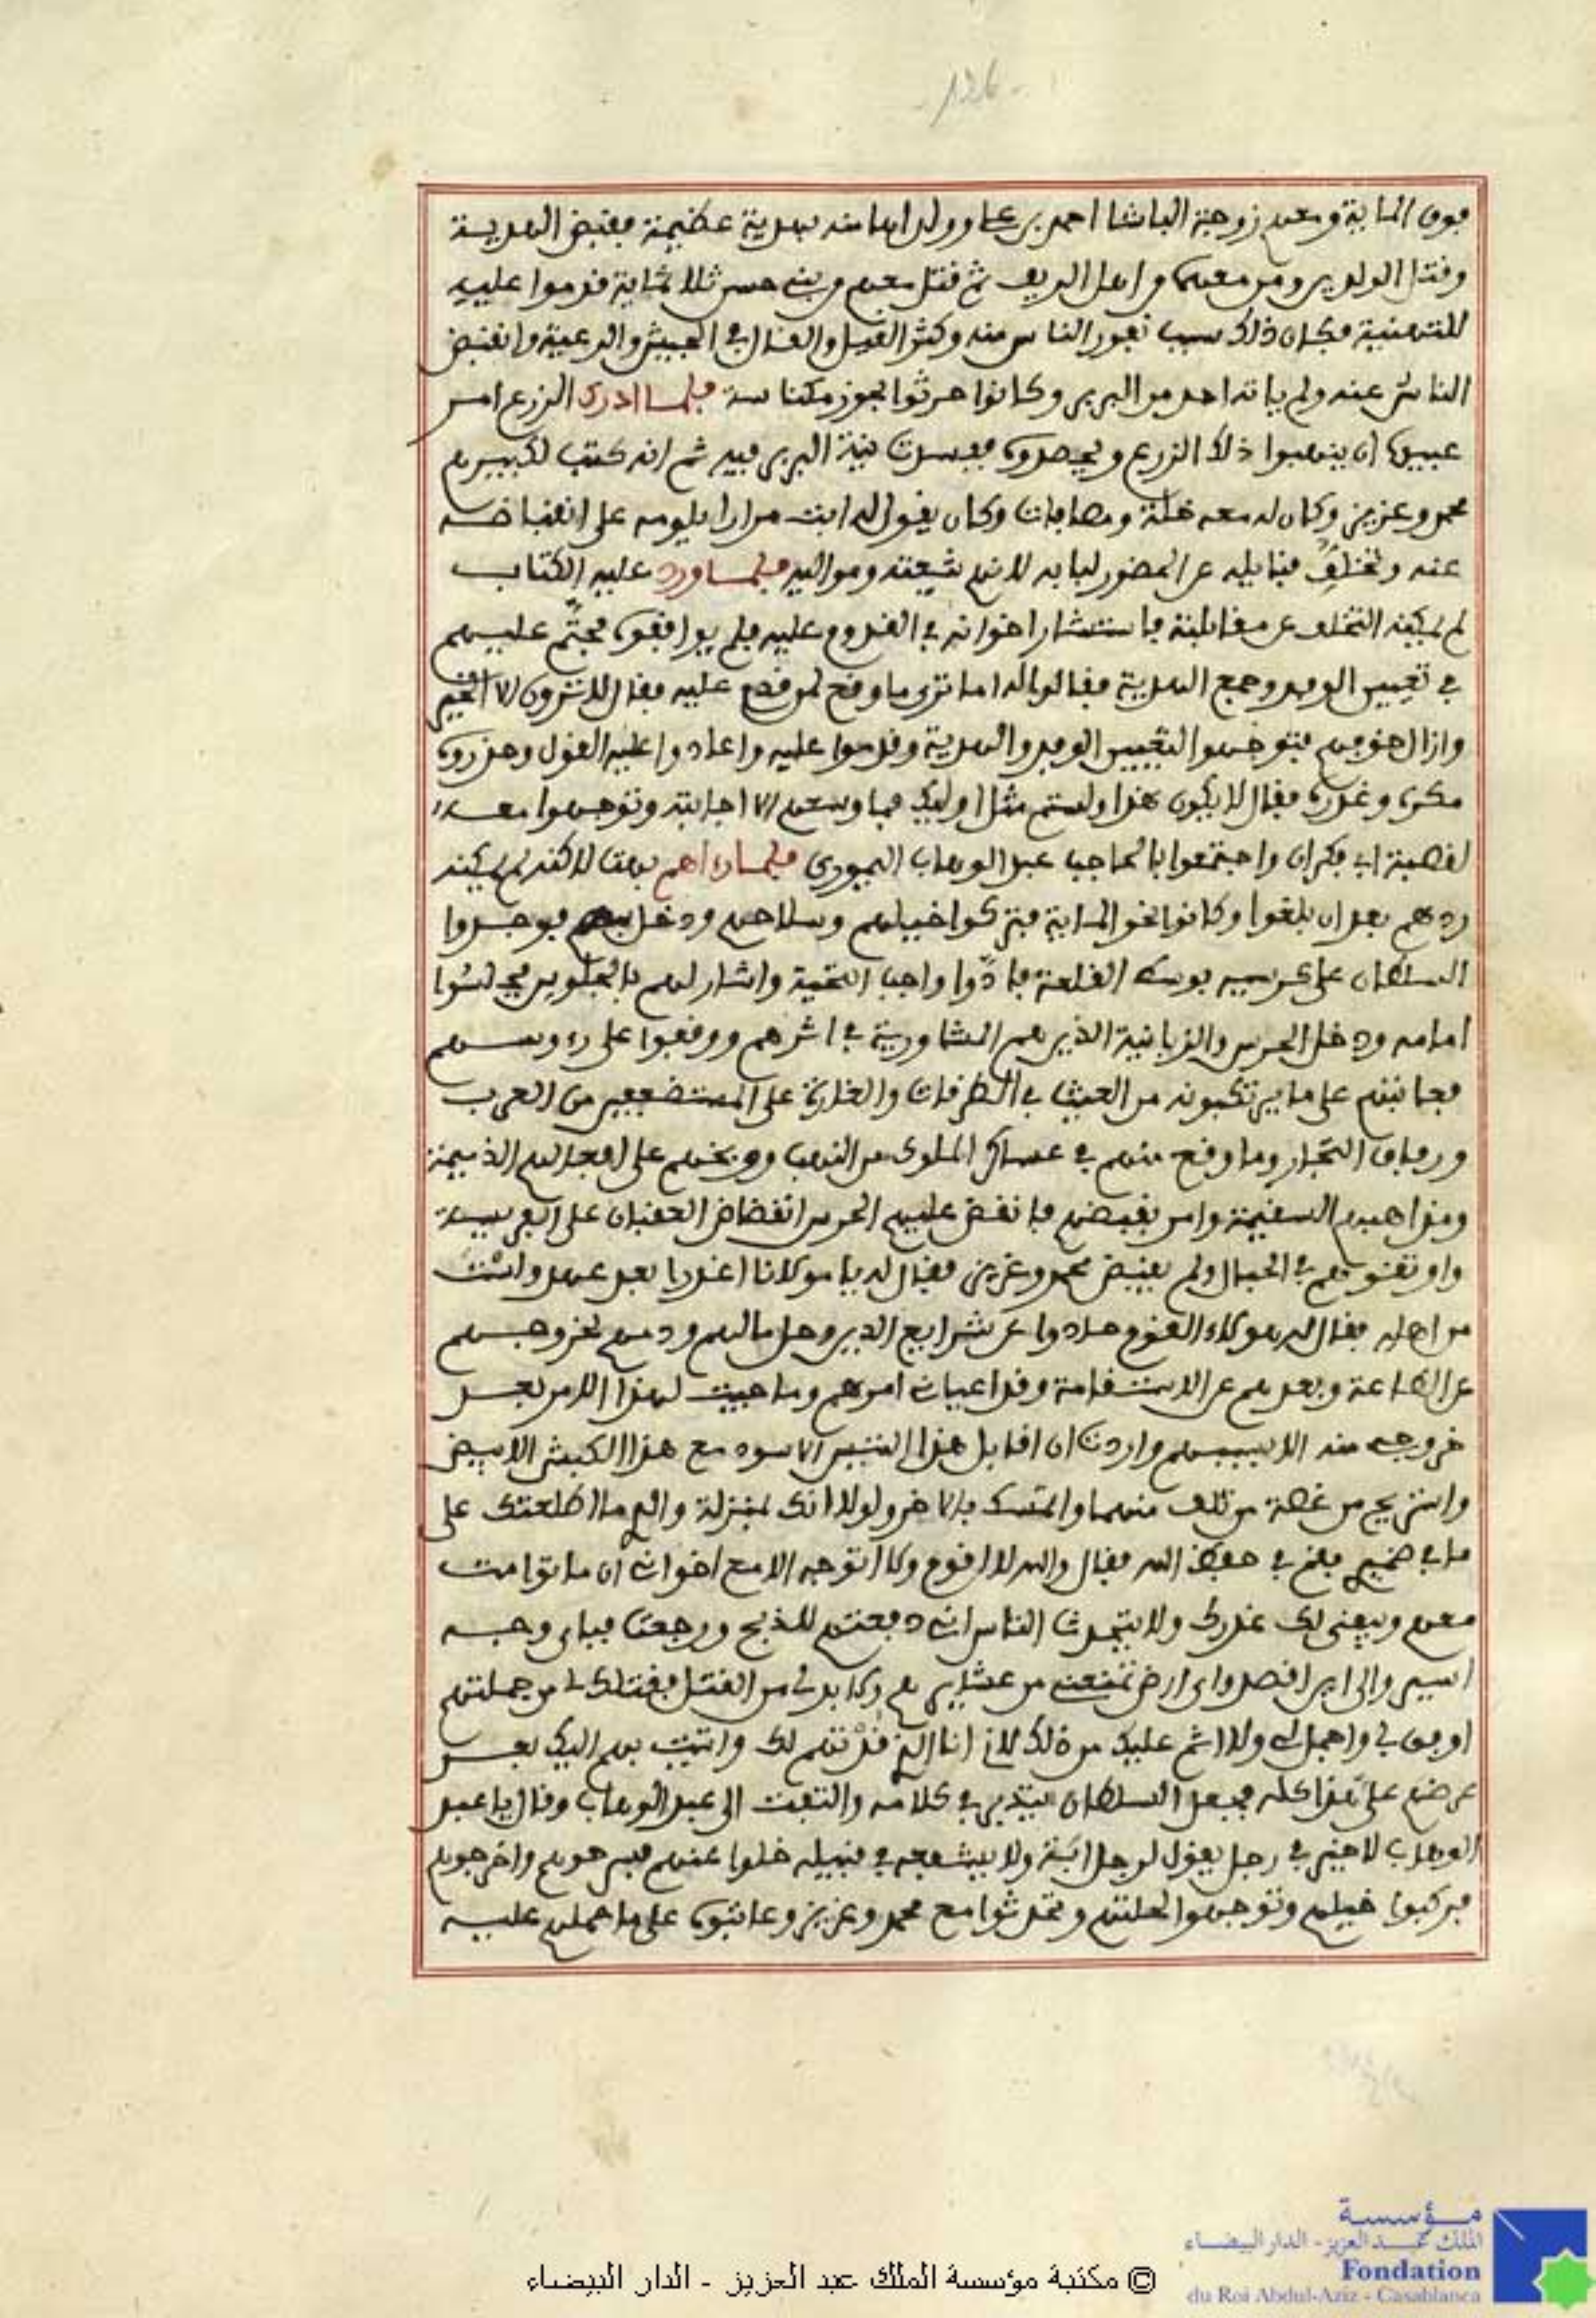 -126-
فوق المائة ومعهم زوجة الباشا احمد بن علي وولداها منه بهدية عظيمة فقبض الهدية
وقتل الولدين ومن معهما من اهل الريف ثم قتل معهم من بني حسن ثلاثمائة قدموا عليه
للتهنية فكان ذلك سبب نفور الناس منه وكثر القيل والقال في الجيش والرعية وانقبض
الناس عنه ولم ياته احد من البربر وكانوا حرثوا بحوز مكناسة فلما ادرك الزرع امر
عبيده ان ينهبوا ذلك الزرع ويحصدوه ففسدت نية البربر فيه ثم انه كتب لكبيرهم
محمد وعزيز وكان له معه خلة ومصافات وكان يقول له ابت مرارا يلومه على انقباضه
عنه وتخلف قبايله عن الحضور لبابه لانهم شيعته ومواليه فلما ورد عليه الكتاب
لم يمكنه التخلف عن مقابلته فاستشار اخوانه في القدوم عليه فلم يوافقوه فحتم عليهم
في تعيين الوفد وجمع الهدية فقالوا له اما ترى ما وقع لمن قدم عليه فقال لا ترون الا الخير
وازال خوفهم فتوجهوا لتعيين الوفد والهدية وقدموا عليه واعادوا عليه القول وحذروه
مكره وغدره فقال لا يكون هذا ولستم مثل اوليك فما وسعهم الا اجابته وتوجهوا معه
لقصبة اب فكران واجتمعوا بالحاجب عبد الوهاب اليموري فلما رءاهم بهت لاكنه لم يمكنه
ردهم بعد ان بلغوا وكانوا نحو المائة فتركوا خيلهم وسلاحهم ودخل بهم فوجدوا
السلطان على كرسيه بوسط القلعة فادوا واجب التحية واشار لهم بالجلوس فجلسوا
امامه ودخل الحرس والزبانية الذين هم المشاورية في اثرهم ووقفوا على رءوسهم
فعاتبهم على ما يرتكبونه من العيث في الطرقات والغارة على المستضعفين من العرب
ورفاق التجار وما وقع منهم في عساكر الملوك من النهب ووبخهم على افعالهم الذميمة
ومذاهبهم السقيمة وامر بقبضهم فانقض عليهم الحرس انقضاض العقبان على الفريسة
واوثقوهم في الحبال ولم يقبض محمد وعزيز فقال له يا مولانا اغدرا بعد عهد وانت
من اهله فقال له هولاء القوم حادوا عن شرايع الدين وحل مالهم ودمهم لخروجهم
عن الطاعة وبعدهم عن الاستقامة وقد اعياني امرهم وما جيت لهذا الامر بعد
خروجي منه الا بسببهم واردت ان اقابل هذا التيس الاسود مع هذا الكبش الابيض
واستريح من غصة من تلف منهما والتمسك بالاخر ولولا انك بمنزلة والدي ما اطلعتك على
ما في ضميري فقم في حفظ الله فقال والله لا اقوم ولا اتوجه الا مع اخواني ان ماتوا مت
معهم ويهنى لك غدرك ولا يتحدث الناس اني دفعتهم للذبح ورجعت فباي وجه
اسير والى اين اقصد واي ارض تمنعني من عشايرهم ولا بد لي من القتل فقتلك لي من جملتهم
اوفق لي واجمل لي ولا اثم عليك من ذلك لاني انا الذي قدتهم لك واتيت بهم اليك بعد
عرضهم علي هذا كله فجعل السلطان يتدبر في كلامه والتفت الى عبد الوهاب وقال يا عبد
الوهاب لا خير في رجل يقول لرجل ابت ولا يشفعه في قبيله خلوا عنهم فسرحوهم واخرجوهم
فركبوا خيلهم وتوجهوا لحلتهم وتحدثوا مع محمد وعزيز وعاتبوه على ما حملهم عليه
© مكتبة مؤسسة الملك عبد العزيز - الدار البيضاء
مؤسسة
الملك عبد العزيز - الدار البيضاء
Fondation
du Roi Abdul-Aziz - Casablanca